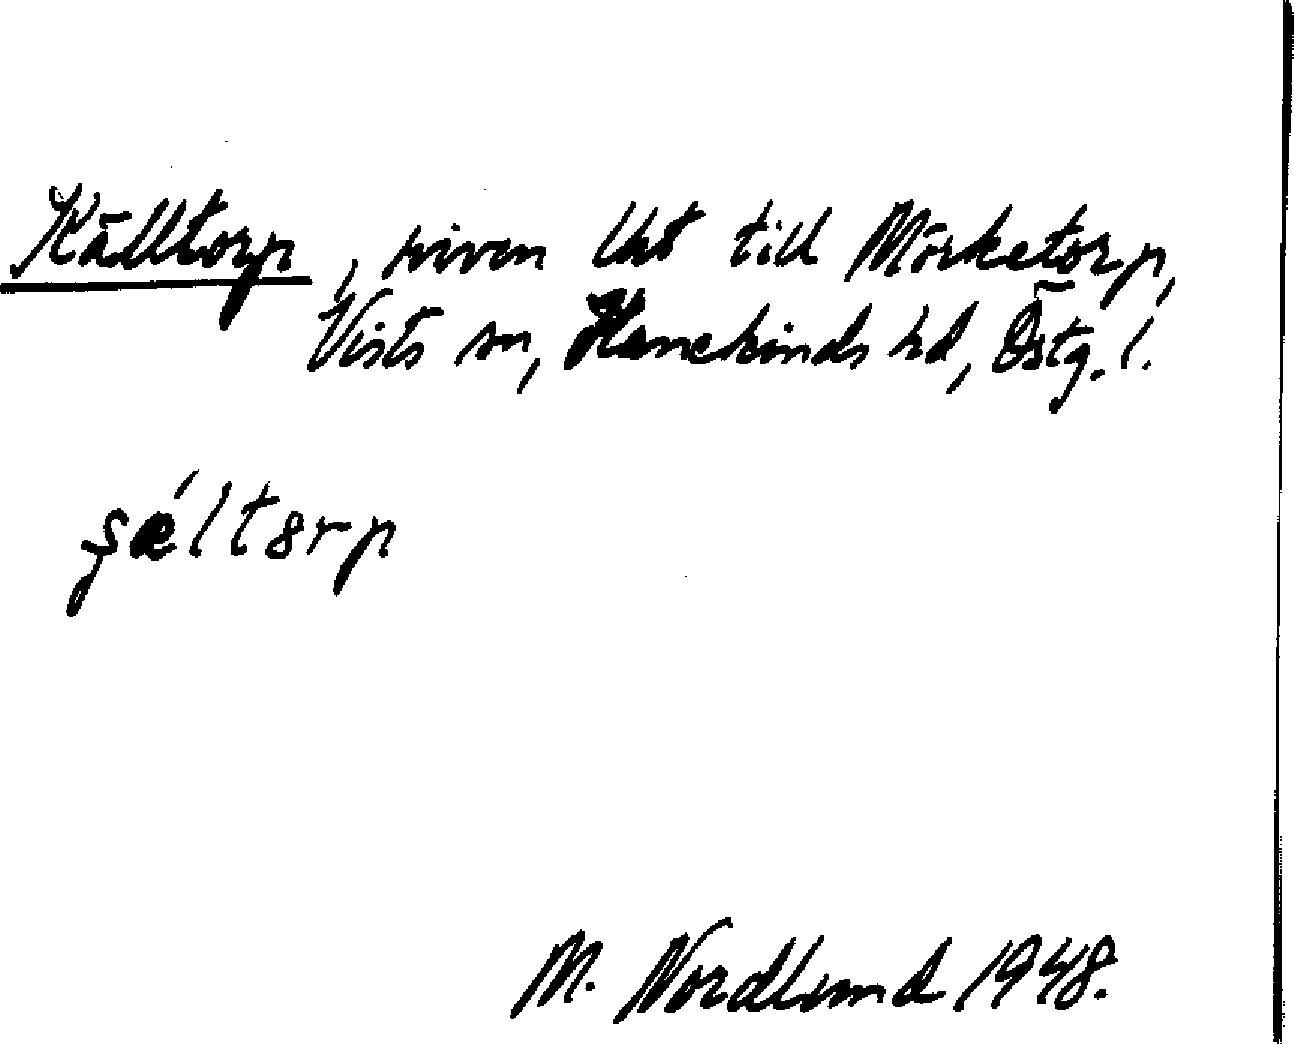 Källtorp, riven lht till Mörketorp,
Vists sn, Hanekinds hd, Östg. l.
şæ´ltȣrp
M. Nordlund 1948.